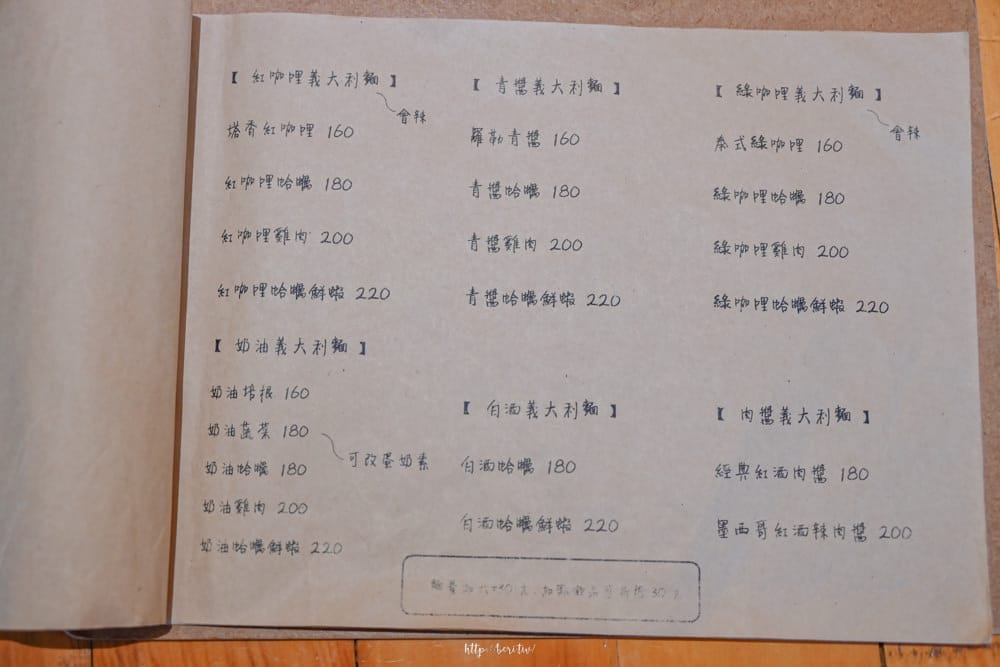 【 紅咖哩義大利麵 】
會辣
塔香紅咖哩 160
紅咖哩蛤蠣 180
紅咖哩雞肉 200
紅咖哩蛤蠣鮮蝦 220
【 奶油義大利麵 】
奶油培根 160
奶油蔬菜 180
可改蛋奶素
奶油蛤蠣 180
奶油雞肉 200
奶油蛤蠣鮮蝦 220
【 青醬義大利麵 】
羅勒青醬 160
青醬蛤蠣 180
青醬雞肉 200
青醬蛤蠣鮮蝦 220
【 白酒義大利麵 】
白酒蛤蠣 180
白酒蛤蠣鮮蝦 220
【 綠咖哩義大利麵 】
會辣
泰式綠咖哩 160
綠咖哩蛤蠣 180
綠咖哩雞肉 200
綠咖哩蛤蠣鮮蝦 220
【 肉醬義大利麵 】
經典紅酒肉醬 180
墨西哥紅酒辣肉醬 200
麵量加大+30元、加點飲品可折抵30元